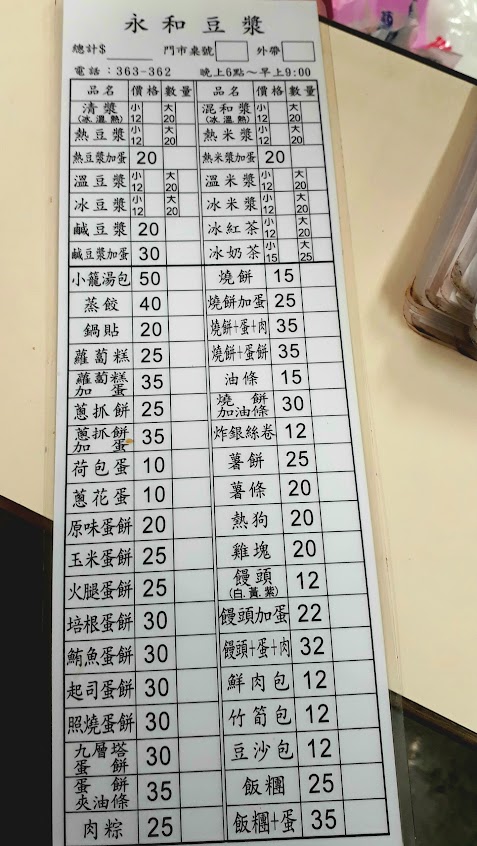 永和豆漿
總計$ 門市桌號 外帶
電話：363-362 晚上6點～早上9:00
品名 價格 數量 品名 價格 數量
清漿(冰.溫.熱) 小12 大20 混和漿(冰.溫.熱) 小12 大20
熱豆漿 小12 大20 熱米漿 小12 大20
熱豆漿加蛋 20 熱米漿加蛋 20
溫豆漿 小12 大20 溫米漿 小12 大20
冰豆漿 小12 大20 冰米漿 小12 大20
鹹豆漿 20 冰紅茶 小12 大20
鹹豆漿加蛋 30 冰奶茶 小15 大25
小籠湯包 50 燒餅 15
蒸餃 40 燒餅加蛋 25
鍋貼 20 燒餅+蛋+肉 35
蘿蔔糕 25 燒餅+蛋餅 35
蘿蔔糕加蛋 35 油條 15
蔥抓餅 25 燒餅加油條 30
蔥抓餅加蛋 35 炸銀絲卷 12
荷包蛋 10 薯餅 25
蔥花蛋 10 薯條 20
原味蛋餅 20 熱狗 20
玉米蛋餅 25 雞塊 20
火腿蛋餅 25 饅頭(白.黃.紫) 12
培根蛋餅 30 饅頭加蛋 22
鮪魚蛋餅 30 饅頭+蛋+肉 32
起司蛋餅 30 鮮肉包 12
照燒蛋餅 30 竹筍包 12
九層塔蛋餅 30 豆沙包 12
蛋餅夾油條 35 飯糰 25
肉粽 25 飯糰+蛋 35